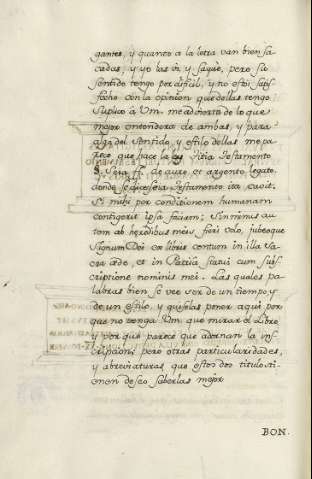 gantes, y quanto a la letra van bien sa-
cadas, y yo las vi, y saquè, pero su
sentido tengo por dificil, y no estoi satis-
fecho con la opinion que dellas tengo
Suplico à Vm. me advierta de lo que
mejor entendiera de ambas, y para
algo del sentido, y estilo dellas me pa-
rece que hace la ley Titia Testamento
§. Seia ff. de auro, et argento legato,
donde se dice Seia Testamento ita cavit.
Si mihi per conditionem humanam
contigerit ipsa faciam; Sin minus au-
tem ab heredibus meis fieri volo, jubeoque
Signum Dei ex libris centum in illa Sa-
cra æde, et in Patria statui cum subs-
criptione nominis mei. Las quales pa-
labras bien se vee ser de un tiempo, y
de un estilo, y quiselas poner aqui por
que no tenga Vm. que mirar el Libro,
y por que parece que adornan la ins-
cripcion; pero otras particularidades,
y abreviaturas que estos dos titulos ti-
enen deseo saberlas mejor
BON.